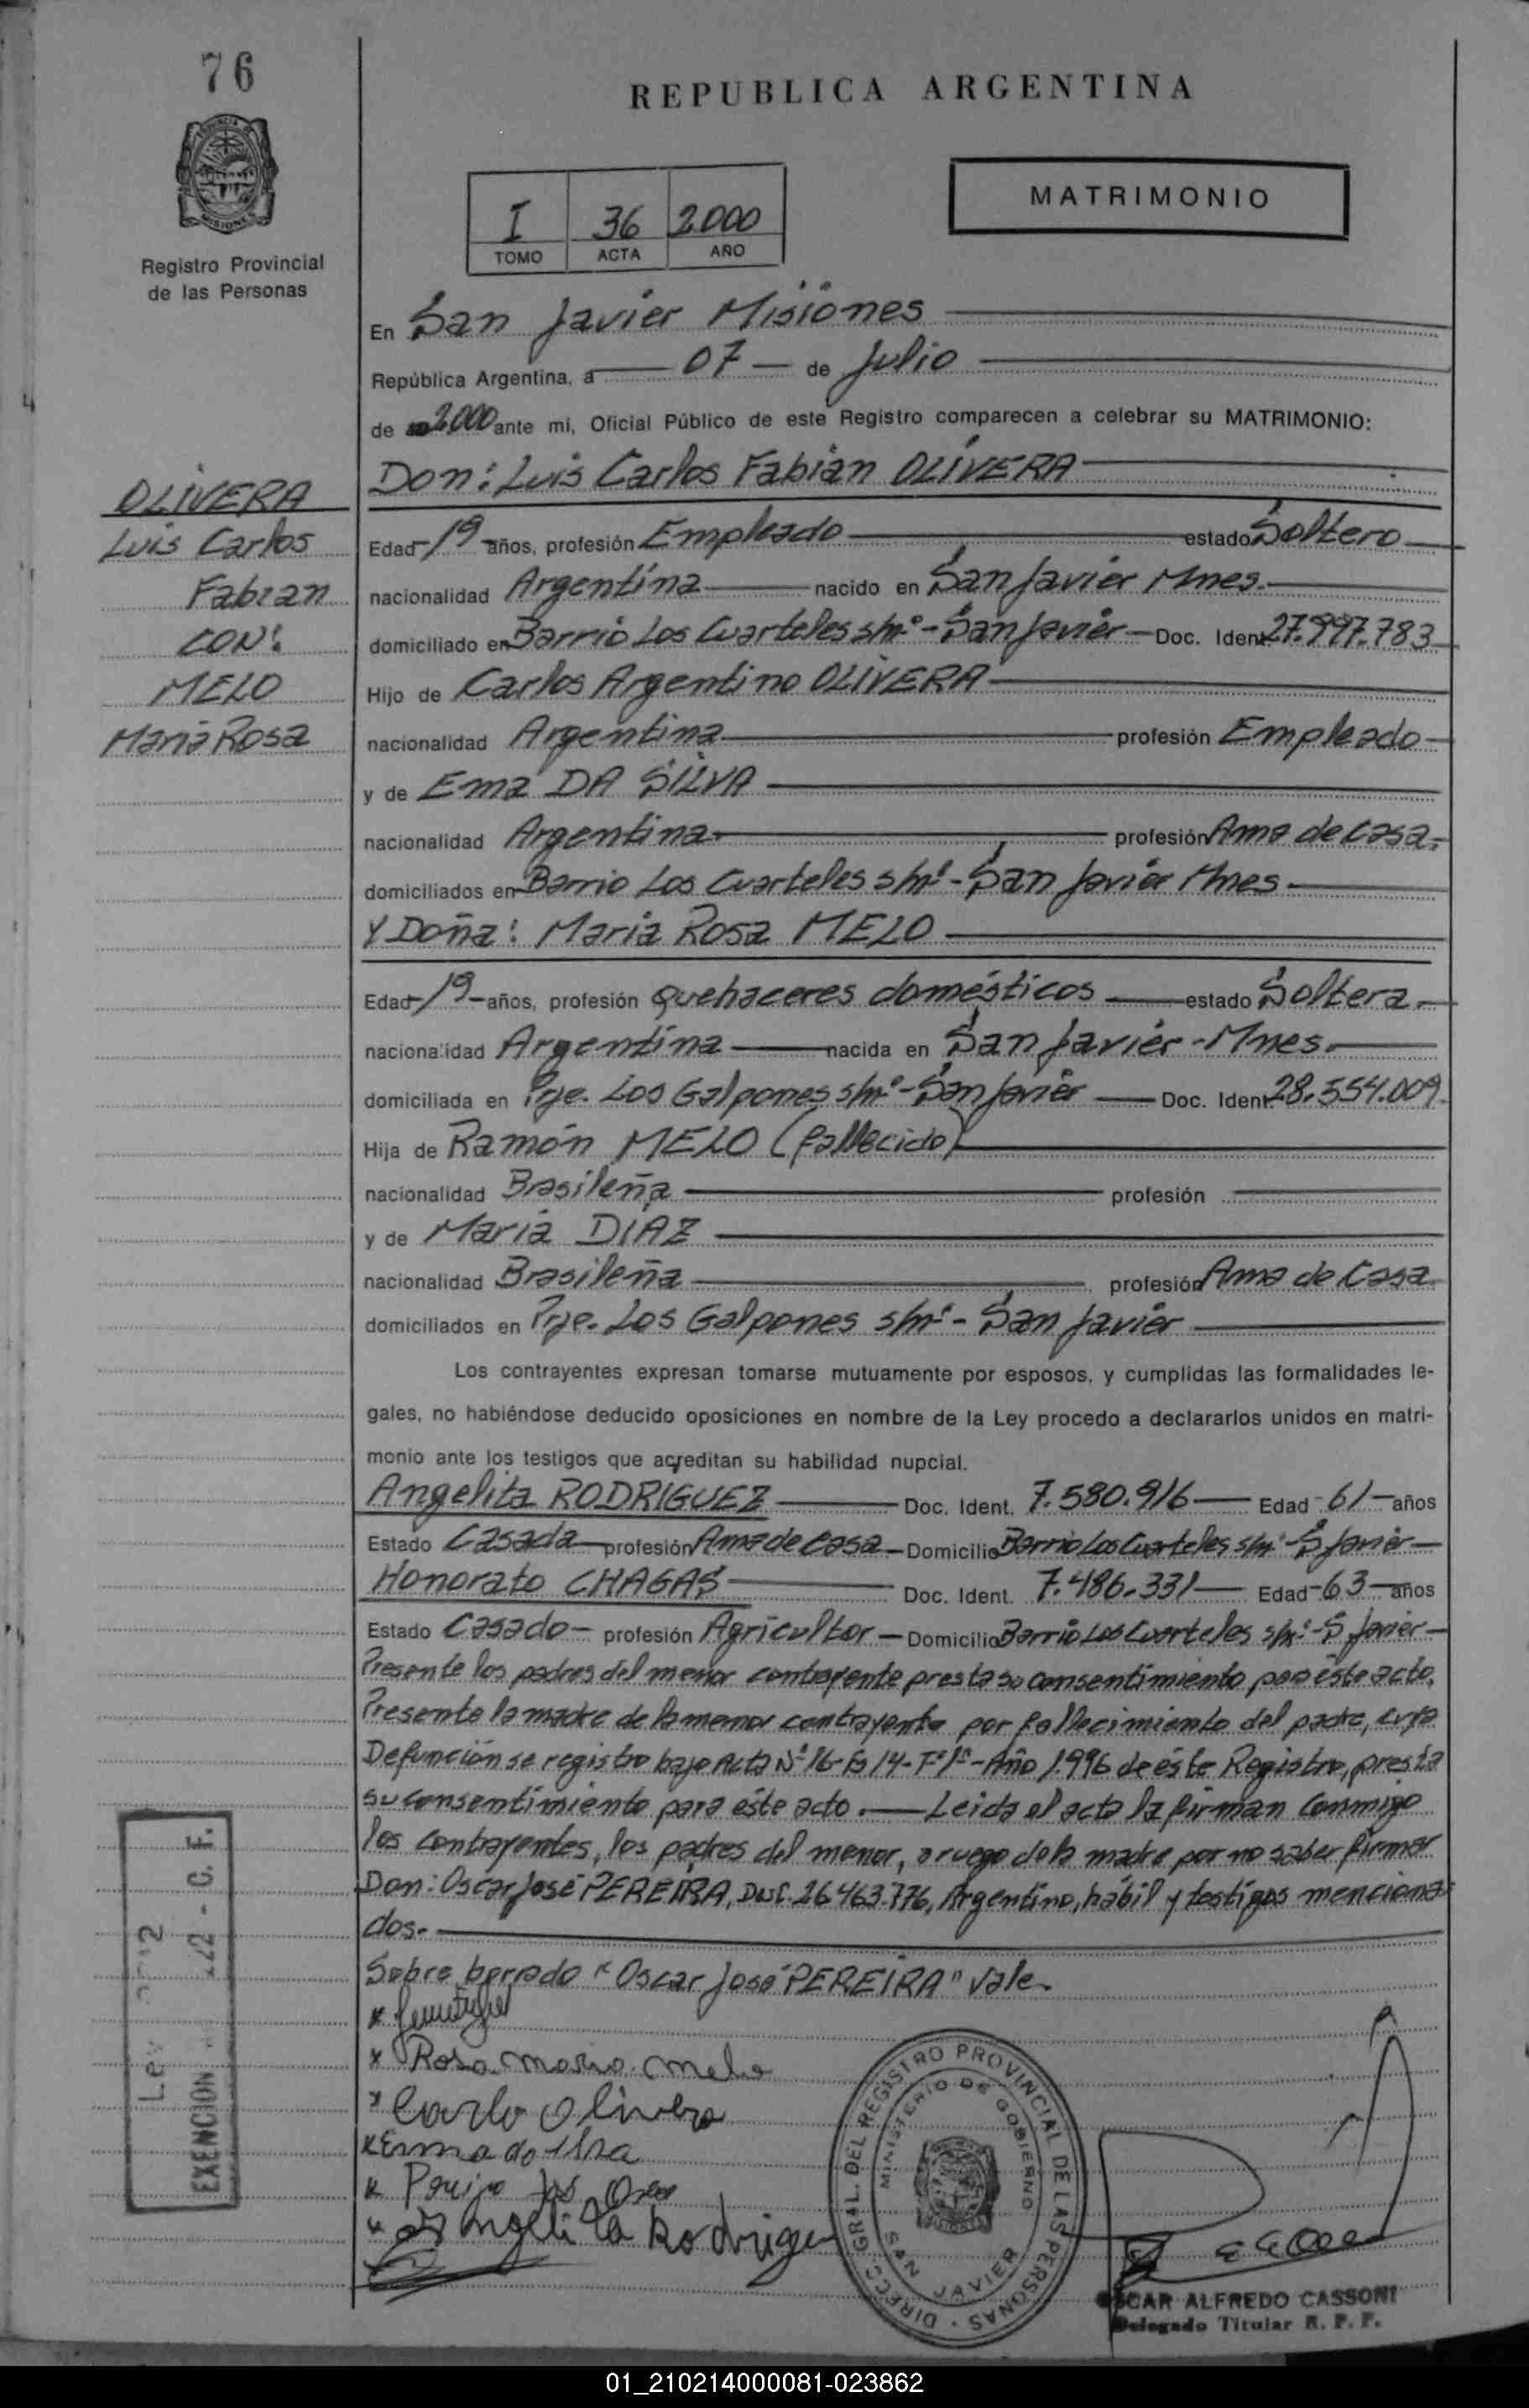 76
REPUBLICA ARGENTINA
PROVINCIA DE MISIONES
MATRIMONIO
I 36 2000
TOMO ACTA AÑO
Registro Provincial
de las Personas
En San Javier Misiones
República Argentina, a 07 de Julio
de 2000 ante mi, Oficial Público de este Registro comparecen a celebrar su MATRIMONIO:
Don: Luis Carlos Fabián OLIVERA
OLIVERA
Luis Carlos
Fabian
CON:
MELO
María Rosa
Edad 19 años, profesión Empleado estado Soltero
nacionalidad Argentina nacido en San Javier Mnes.
domiciliado en Barrio Los Cuarteles s/nº - San Javier - Doc. Ident. 27.997.783
Hijo de Carlos Argentino OLIVERA
nacionalidad Argentina profesión Empleado
y de Ema DA SILVA
nacionalidad Argentina profesión Ama de Casa.
domiciliados en Barrio Los Cuarteles s/nº - San Javier Mnes
Y Doña: María Rosa MELO
Edad 19 años, profesión quehaceres domésticos estado Soltera
nacionalidad Argentina nacida en San Javier - Mnes.
domiciliada en Pje. Los Galpones s/nº - San Javier - Doc. Ident. 28.554.009
Hija de Ramón MELO (fallecido)
nacionalidad Brasileña profesión
y de María DIAZ
nacionalidad Brasileña profesión Ama de Casa
domiciliados en Pje. Los Galpones s/nº - San Javier
Los contrayentes expresan tomarse mutuamente por esposos, y cumplidas las formalidades le-
gales, no habiéndose deducido oposiciones en nombre de la Ley procedo a declararlos unidos en matri-
monio ante los testigos que acreditan su habilidad nupcial.
Angelita RODRIGUEZ Doc. Ident. 7.580.916 Edad 61 años
Estado Casada profesión Ama de Casa Domicilio Barrio Los Cuarteles s/nº - S Javier
Honorato CHAGAS Doc. Ident. 7.486.331 Edad 63 años
Estado Casado profesión Agricultor Domicilio Barrio Los Cuarteles s/nº - S Javier
Presente los padres del menor contrayente presta su consentimiento para éste acto.
Presente la madre de la menor contrayente por fallecimiento del padre, cuya
Defunción se registro bajo Acta Nº 16-Fs 14-Tº 1º-Año 1.996 de éste Registro, presta
su consentimiento para éste acto. Leida el acta la firman conmigo
los contrayentes, los padres del menor, a ruego de la madre por no saber firmar
Don: Oscar José PEREIRA, 26.463.776, Argentino, hábil y testigos menciona-
dos.
Sobre borrado "Oscar José PEREIRA" Vale.
x Rosa maria melo
x Carlo Olivera
x Ema da silva
x Angelita Rodrigue
Ley
EXENCION 22 - C. F.
DIRECC. GRAL. DEL REGISTRO PROVINCIAL DE LAS PERSONAS
MINISTERIO DE GOBIERNO
SAN JAVIER
OSCAR ALFREDO CASSONI
Delegado Titular R. P. P.
01_210214000081-023862